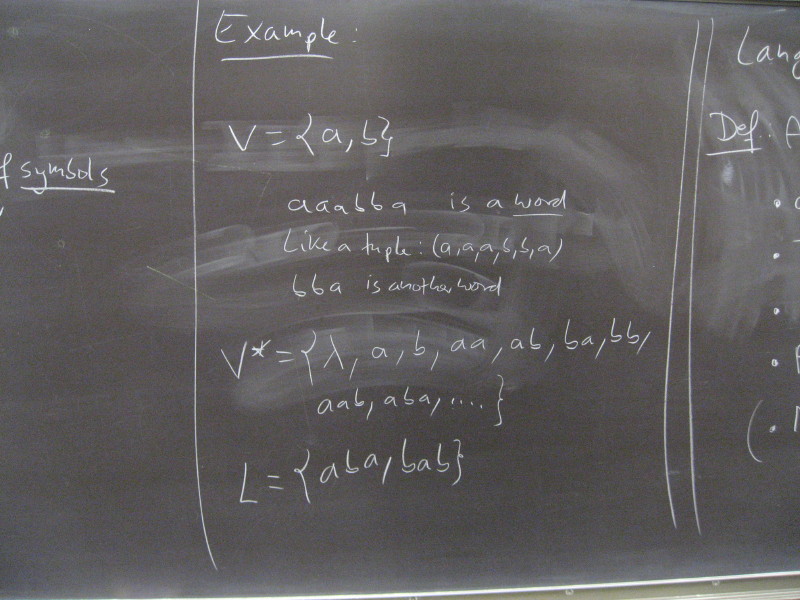 f symbols
Example:
V = {a, b}
aaabba is a word
Like a tuple: (a,a,a,b,b,a)
bba is another word
V* = {λ, a, b, aa, ab, ba, bb,
aab, aba, ....}
L = {aba, bab}
Lang
Def: A